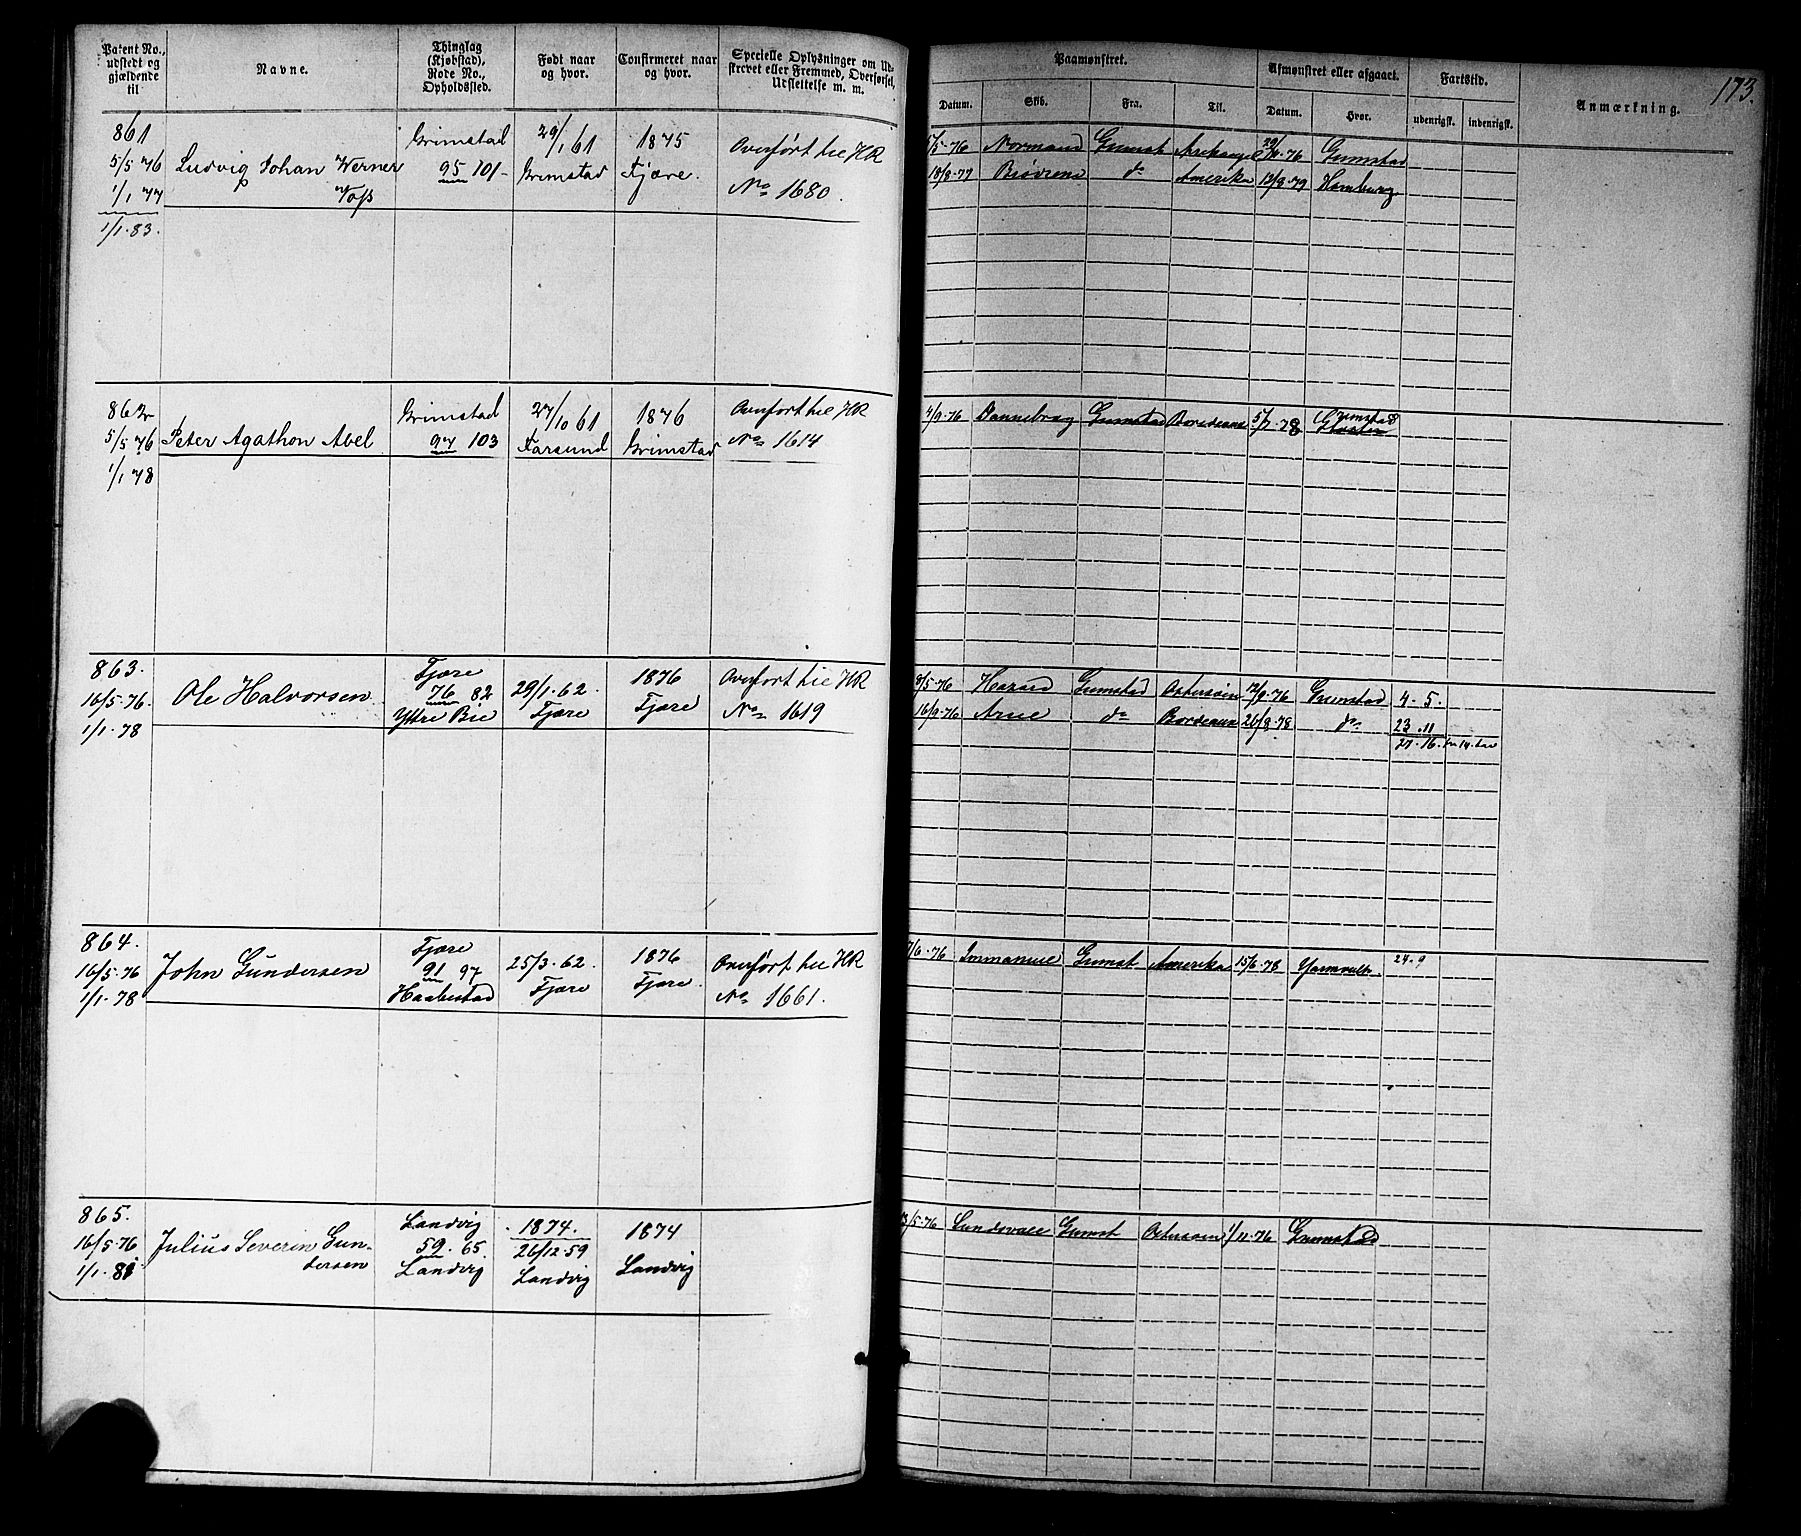 173.
Patent No., udstedt og gjældende til
Navne.
Thinglag (Kjøbstad), Rode No., Opholdssted.
Født naar og hvor.
Confirmeret naar og hvor.
Specielle Oplysninger om Udskrevet eller Fremmed, Overførsel, Udslettelse m. m.
Paamønstret.
Datum. Skib. Fra. Til.
Afmønstret eller afgaaet.
Datum. Hvor.
Fartstid.
udenrigsk. indenrigsk.
Anmærkning.
861
5/5 76
1/1 77
1/1.83.
Ludvig Johan Werner
Voss
Grimstad
95 101
29/1 61
Grimstad
1875
Fjære.
Overført til HR
No 1680.
1/5-76 Normand Grimst Arekangel 76 Grimstad
18/8-77 do Amerika 12/8-79 Hamburg
862
5/5 76
1/1 78
Peter Agathon Abel
Grimstad
97 103
27/10 61
Farsund
1876
Grimstad
Overført til HR
No 1614
4/9-76 Dannebrog Grimstad Bordeaux 5/7-78 Grimstad
863.
16/5-76.
1/1-78
Ole Halvorsen
Fjære
76 82
Yttre Bie
29/1-62.
Fjære
1876
Fjære
Overført til HR
No 1619
Grimstad Østersøen 12/9-76 Grimstad 4-5.
16/9-76 Arne do Bordeaux 26/8-78 do 23.11
27-16.
864.
16/5-76
1/1-78
John Gundersen
Fjære
91 97
Haabestad
25/3-62.
Fjære
1876
Fjære.
Overført til HR
No 1661.
7/6-76 Immanuel Grimst Amerika 15/6-78 24-9
865.
16/5-76
1/1.81
Julius Severin Gun-
dersen
Landvig
59. 65
Landvig
1874.
26/12-59
Landvig
1874
Landvig
Sundsvall Grimst Østersøen 1/11-76 Grimstad